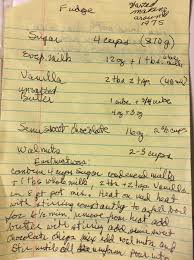 Fudge
started making around 1975
Sugar 4 cups (870g)
Evap. milk 12 oz + 1 tbs whole milk
Vanilla 2 tbs 2 tsp (40ml)
unsalted
Butter 1 cube + 3/4 cube
Semisweet chocolate 16 oz 2 2/3 cups
Walnuts 2-3 cups
Instructions:
combine 4 cups sugar condensed milk
+ 1 tbs whole milk 2 tbs + 2 tsp vanilla
in lg pot mix, heat on med heat
with stirring constantly to a full boil
for 6 1/2 min, remove from heat add
butter with stirring add semi sweet
chocolate chips mix add walnuts and
stir until all uniform pour into